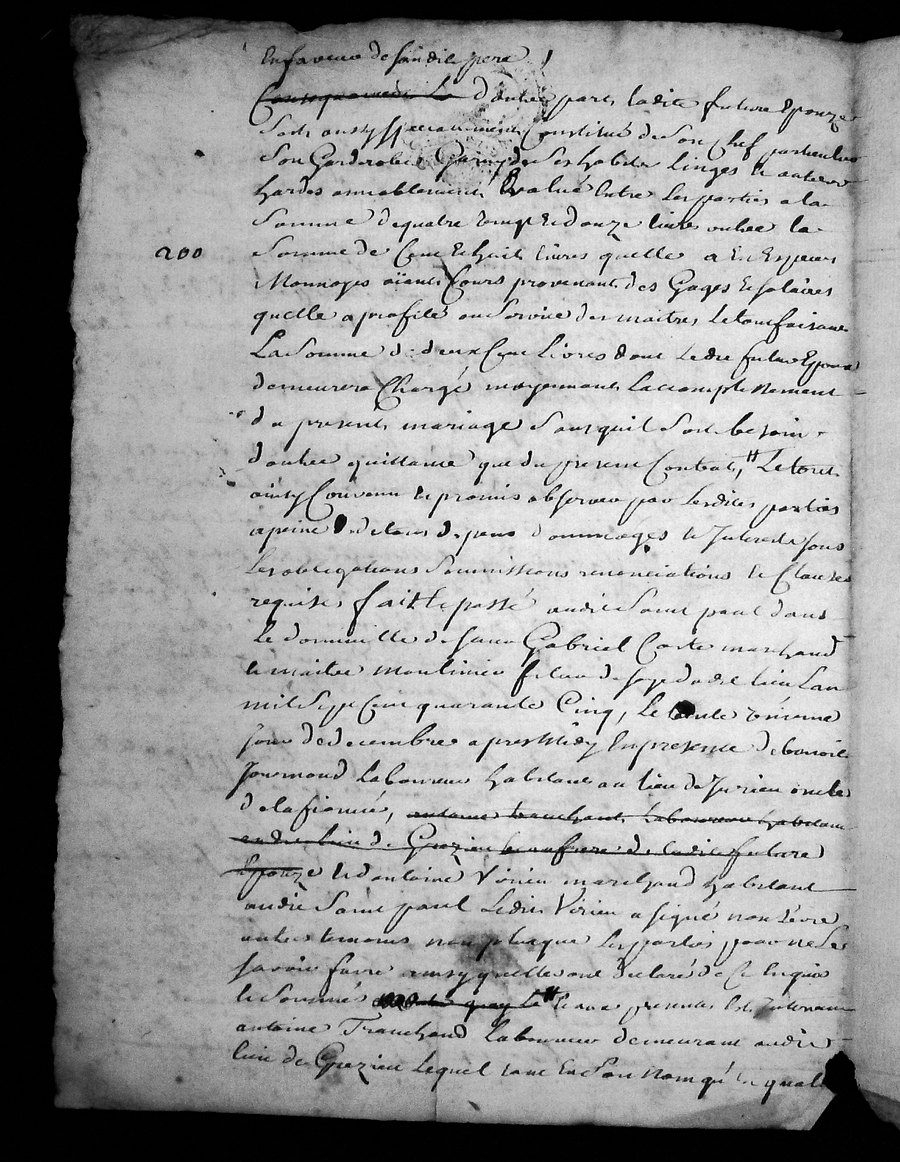 En faveur de sondit pere
Consequament La D'autre part, ladite future Epouze
Soit aussy specialement Constitué de Son Chef particulier
Son Garderobe Garny de Ses habits Linges et autres
hardes amiablement Evalué Entre Les parties a la
Somme de quatre vingt Et douze livres outre la
200
Somme de Cent Et huit livres quelle a En Especes
Monnoyes aïant Cours provenant des Gages Et salaires
quelle a profité au Service des maitres, Le tout faisant
La Somme de deux Cent Livres dont Ledit futur Epoux
demeurera Chargé moyennant Laccomplissement
du present mariage Sans quil Soit besoin
dautre quittance que du present Contrat, Le tout
ainsy Convenu Et promis observer par Lesdites parties
a peine de tous depens dommages Et Interets sous
Les obligations Soumissions renonciations Et Clauses
requises fait Et passé audit Saint paul dans
Le domicille de sieur Gabriel Coste marchand
Et maitre moulinier fileur de soye dudit lieu Lan
mil Sept Cent quarante Cinq, Le trente unieme
jour de decembre apres Midy En presence de benoit
Journoud Laboureur habitant au lieu de Jurieu oncle
de la fiancée, antoine tranchant Laboureur habitant
audit lieu de Grezieu beaufrere de ladite future
Epouze Et dantoine Virieu marchand habitant
audit Saint paul Ledit Virieu a signé non Lautre
autre temoins non plus que Les parties pour ne Le
savoir faire ainsy quelle ont declaré de Ce Enquis
Et Sommés Et aux presentes Est Intervenu
antoine Tranchand Laboureur demeurant audit
lieu de Grezieu Lequel tant En Son Nom qu'En qualité